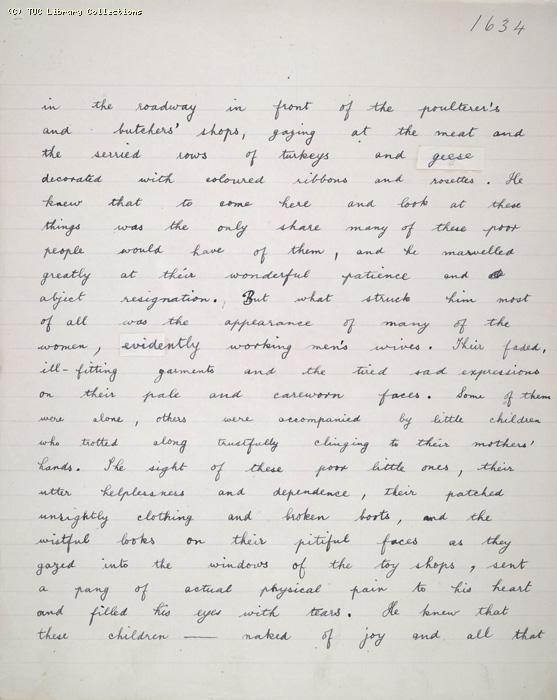 (C) TUC Library Collections
1634
in the roadway in front of the poulterer's
and butchers' shops, gazing at the meat and
the serried rows of turkeys and geese
decorated with coloured ribbons and rosettes. He
knew that to come here and look at these
things was the only share many of these poor
people would have of them, and he marvelled
greatly at their wonderful patience and
abject resignation. But what struck him most
of all was the appearance of many of the
women, evidently working men's wives. Their faded,
ill-fitting garments and the tired sad expressions
on their pale and careworn faces. Some of them
were alone, others were accompanied by little children
who trotted along trustfully clinging to their mothers'
hands. The sight of these poor little ones, their
utter helplessness and dependence, their patched
unsightly clothing and broken boots, and the
wistful looks on their pitiful faces as they
gazed into the windows of the toy shops, sent
a pang of actual physical pain to his heart
and filled his eyes with tears. He knew that
these children — naked of joy and all that